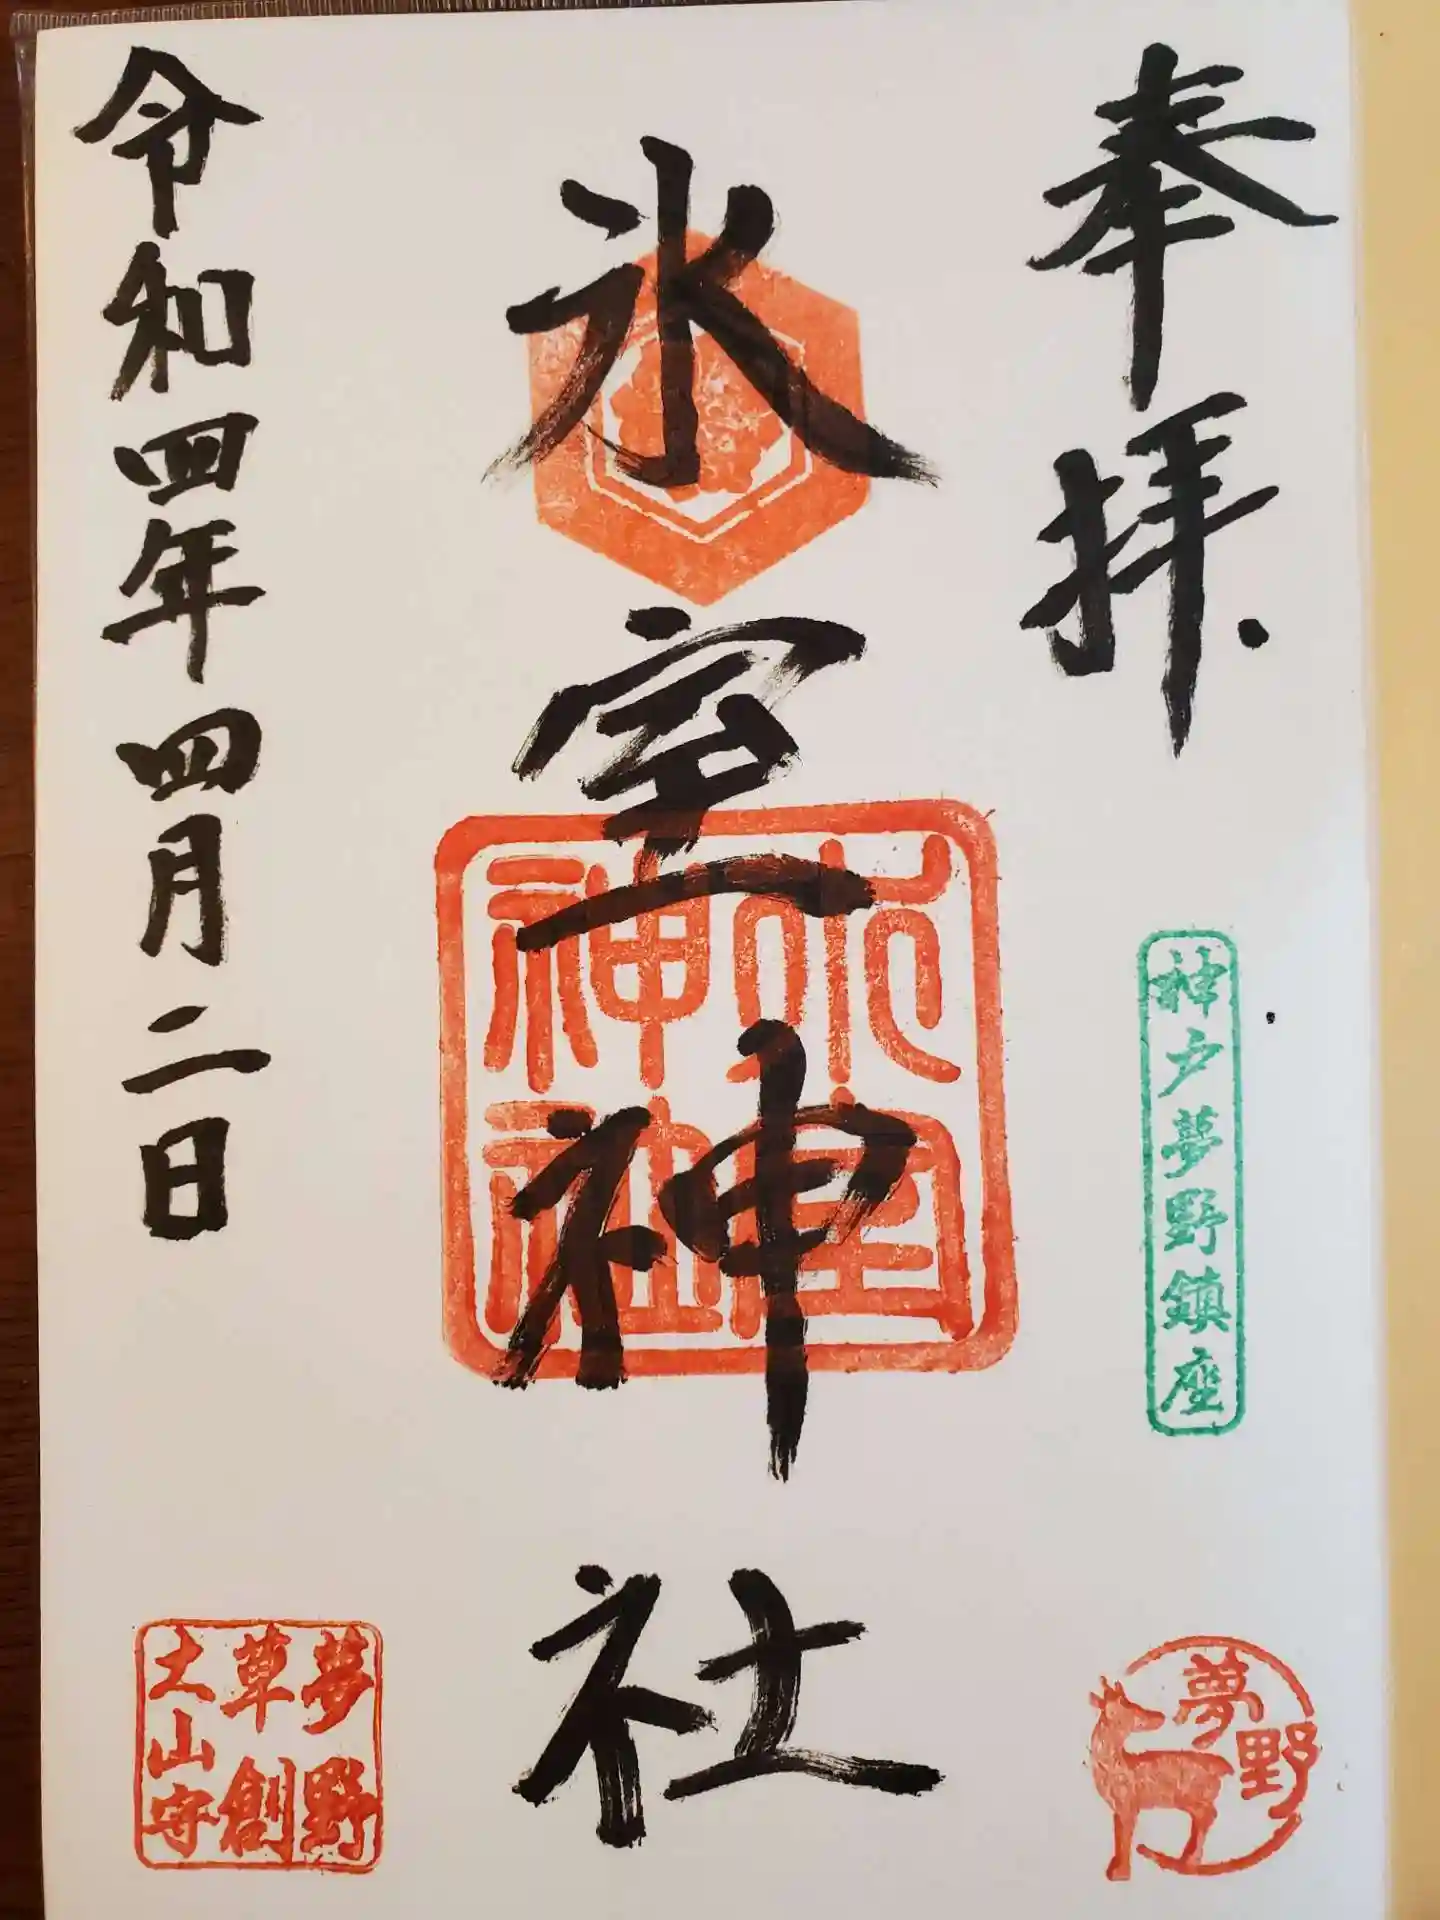 奉拝
神戸夢野鎮座
夢野
氷室神社
氷室
神社
令和四年四月二日
夢野
草創
大山守